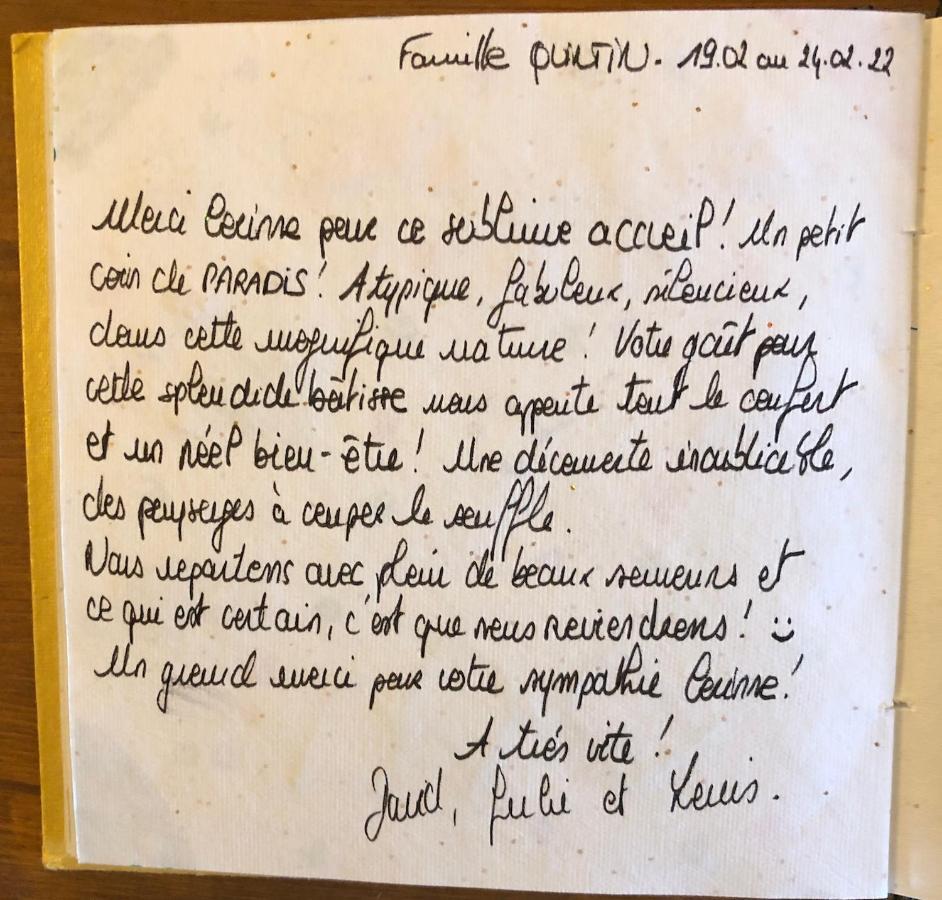 Famille QUINTIN. 19.02 au 24.02.22
Merci Corinne pour ce sublime accueil! Un petit
coin de PARADIS! Atypique, fabuleux, silencieux,
dans cette magnifique nature! Votre goût pour
cette splendide bâtisse nous apporte tout le confort
et un réel bien-être! Une découverte inoubliable,
des paysages à couper le souffle.
Nous repartons avec plein de beaux souvenirs et
ce qui est certain, c'est que nous reviendrons! :)
Un grand merci pour votre sympathie Corinne!
A très vite!
et Louis.